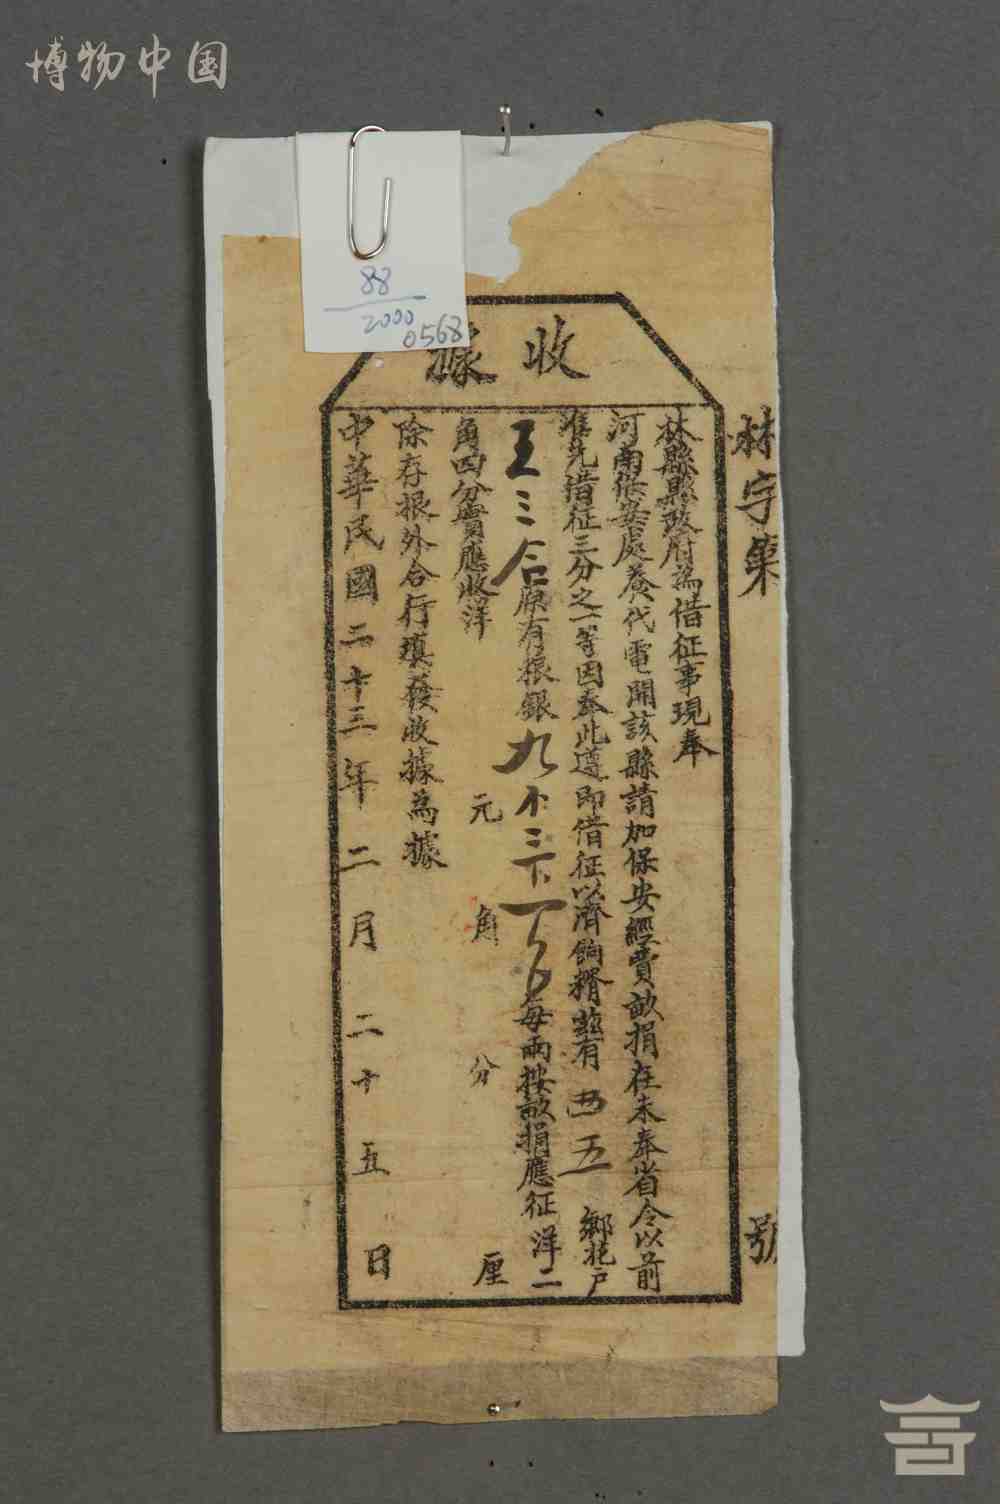 博物中国
88
2000
0568
收據
林字第 號
林縣縣政府為借征事現奉
河南保安處養代電開該縣請加保安經費畝捐在未奉省令以前
准先借征三分之一等因奉此遵即借征以濟餉糈茲有 西五 鄉花戶
王三合原有根銀九 三 一 每兩按畝捐應征洋二
角四分實應收洋 元 角 分 厘
除存根外合行填發收據為據
中華民國二十三年二月二十五日